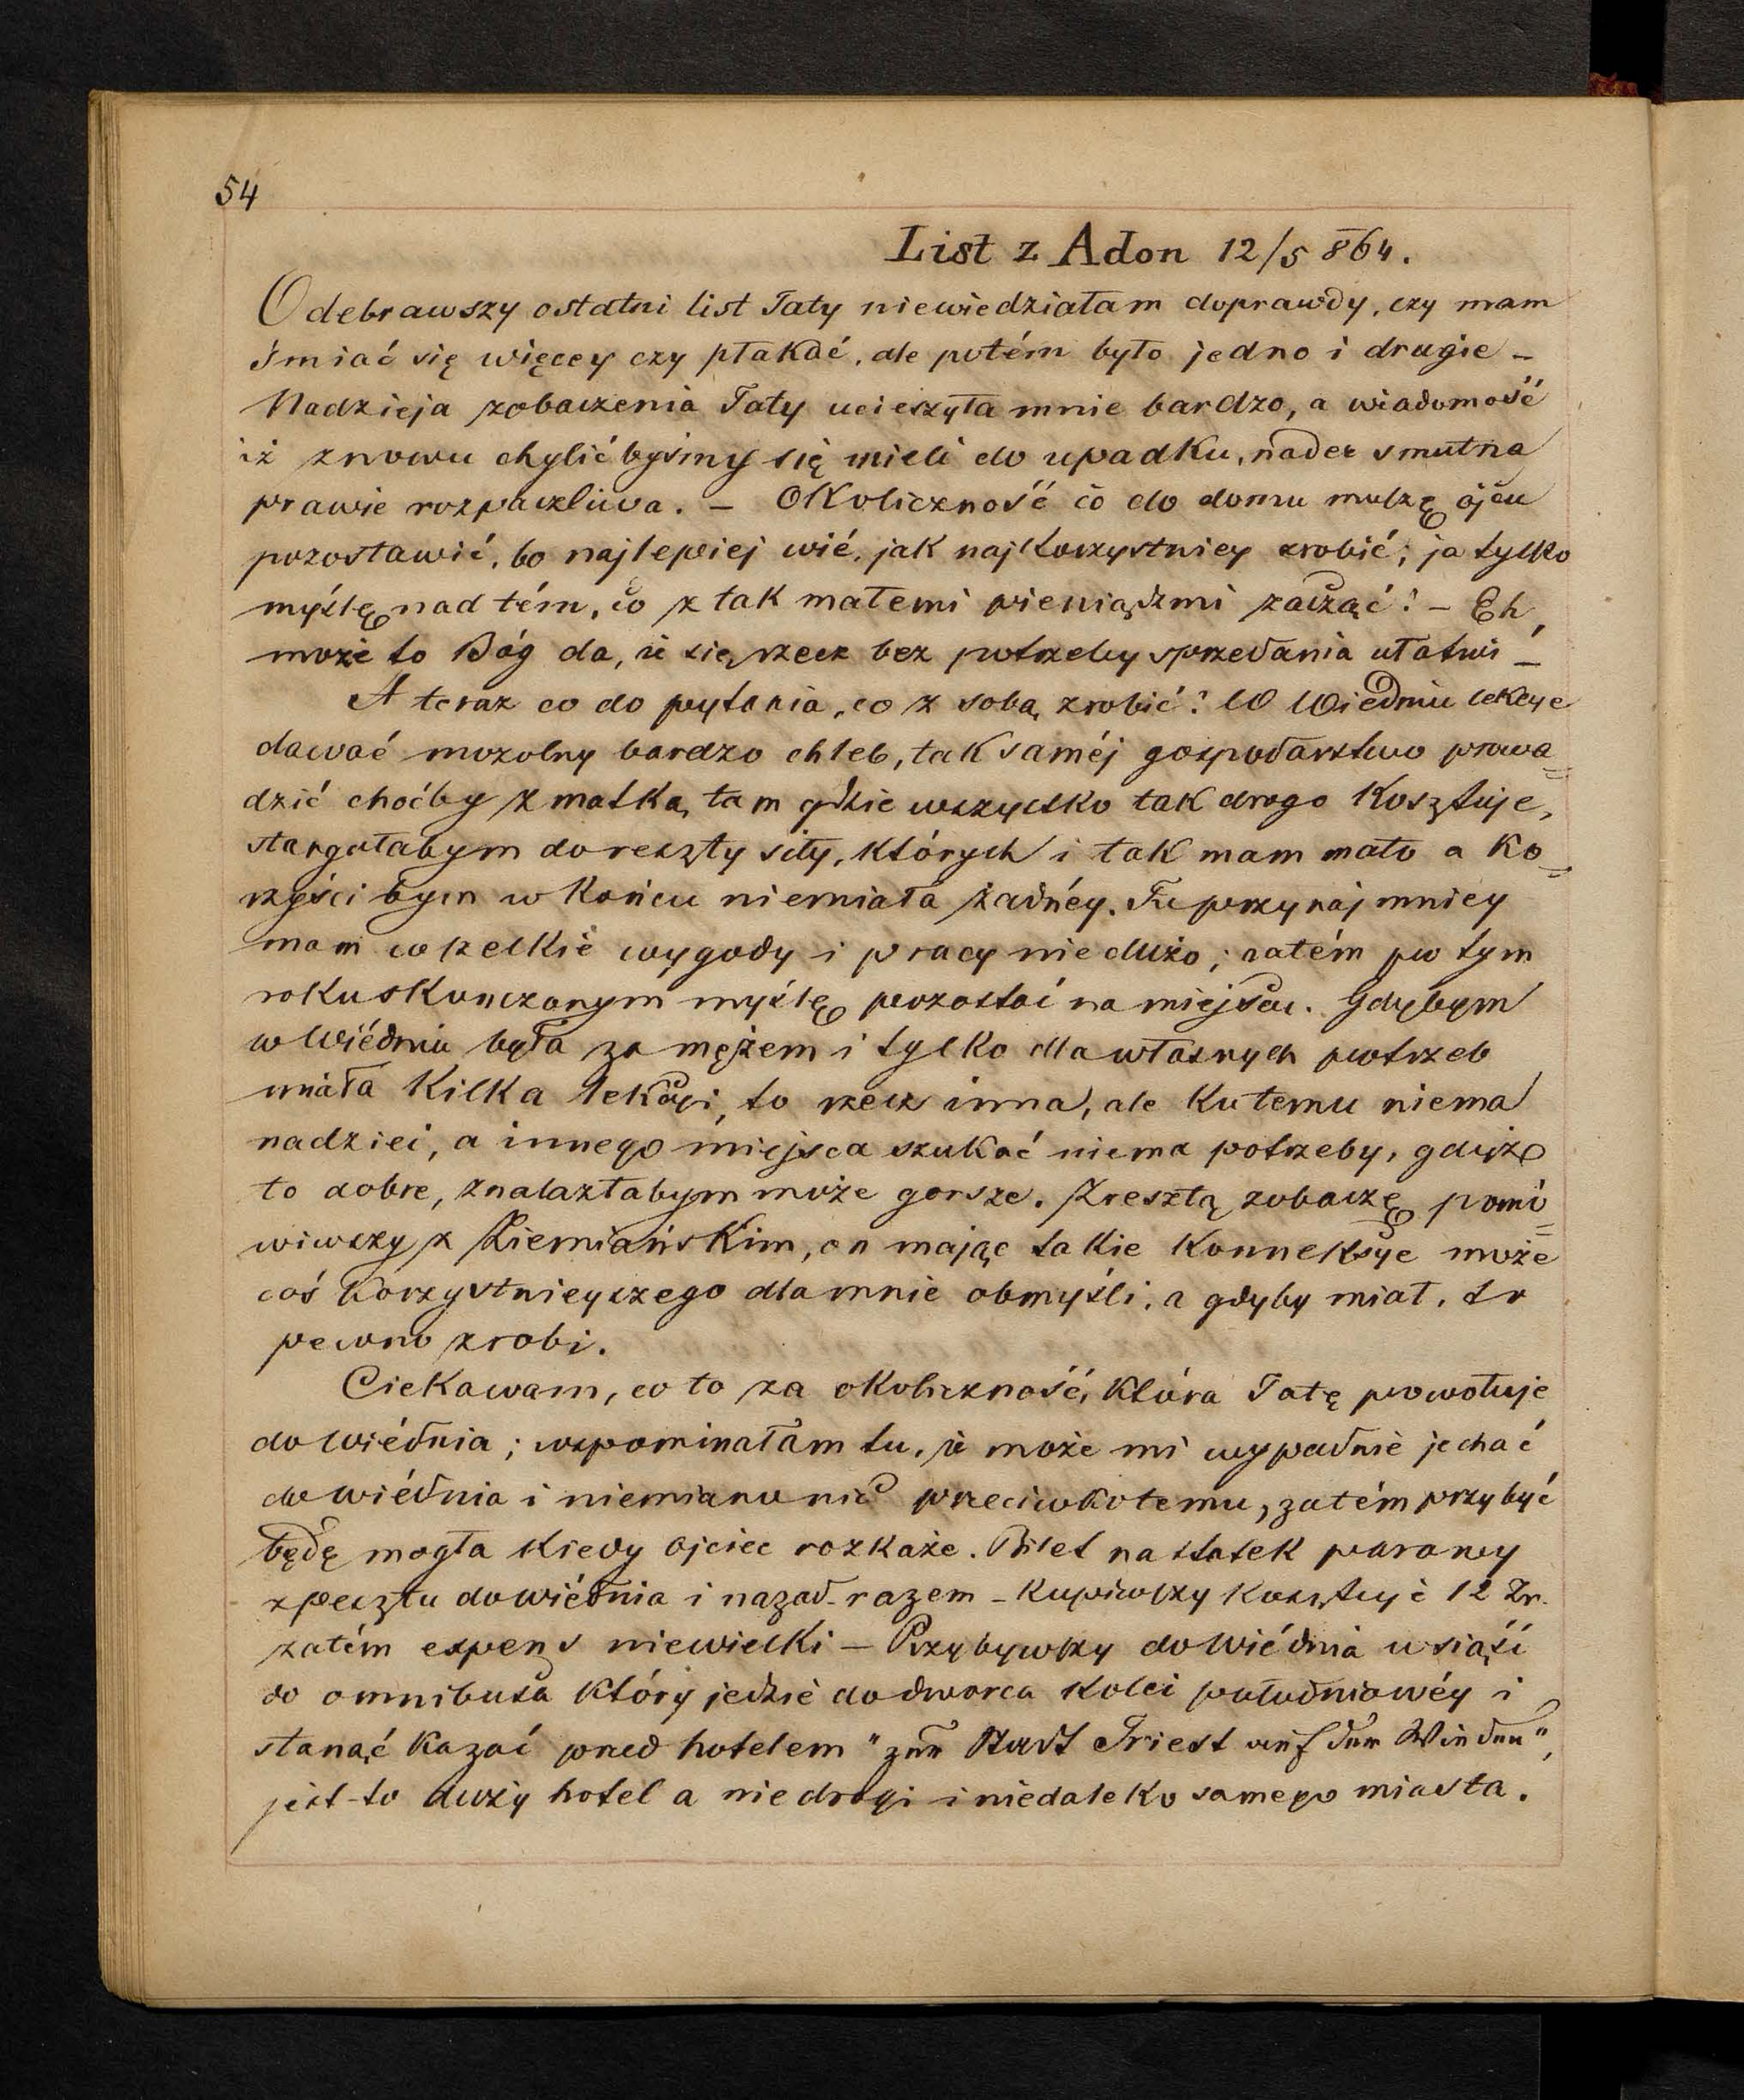 54
List z Adon 12/5 864.
Odebrawszy ostatni list Taty niewiedziałam doprawdy, czy mam
śmiać się więcey czy płakać, ale potém było jedno i drugie –
Nadzieja zobaczenia Taty ucieszyła mnie bardzo, a wiadomość
iż znowu chylić byśmy się mieli do upadku, nader smutna
prawie rozpaczliwa. – Okoliczność co do domu muszę ojcu
pozostawić, bo najlepiej wié, jak najkorzystniey zrobić; ja tylko
myślę nad tém, co z tak małemi pieniądzmi zacząć? – Eh,
może to Bóg da, iż się rzecz bez potrzeby sprzedania ułatwi –
A teraz co do pytania, co z sobą zrobić? W Wiedniu lekcye
dawać mozolny bardzo chleb, tak saméj gospodarstwo prowa=
dzić choćby z matką, tam gdzie wszystko tak drogo kosztuje,
stargałabym doreszty siły, których i tak mam mało a ko=
rzyści bym w końcu niemiała żadnéy. Tu przynajmniey
mam wszelkie wygody i pracy nie dużo; zatém po tym
roku skończonym myślę pozostać na miejscu. Gdybym
w Wiédniu była za mężem i tylko dla własnych potrzeb
miała kilka lekcyi, to rzecz inna, ale ku temu niema
nadziei, a innego miejsca szukać niema potrzeby, gdyż
to dobre, znalazłabym może gorsze. Zresztą zobaczę pomó=
wiwszy z Ziemiańskim, on mając takie konneksye może
coś korzystnieyszego dla mnie obmyśli, a gdyby miał, to
pewno zrobi.
Ciekawam, co to za okoliczność, która Tatę powołuje
do Wiédnia; wspominałam tu, iż może mi wypadnie jechać
do Wiédnia i niemiano nic przeciwko temu, zatém przybyć
będę mogła kiedy ojciec rozkaże. Bilet na statek parowy
z Pesztu do Wiédnia i nazad – razem – kupiwszy kosztuje 12 Zr.
zatém expens niewielki – Przybywszy do Wiédnia usiąść
do omnibusa który jedzie do dworca kolei południowéy i
stanąć kazać przed hotelem "zur Stadt Triest auf der Wieden",
jest to duży hotel a nie drogi i niedaleko samego miasta.